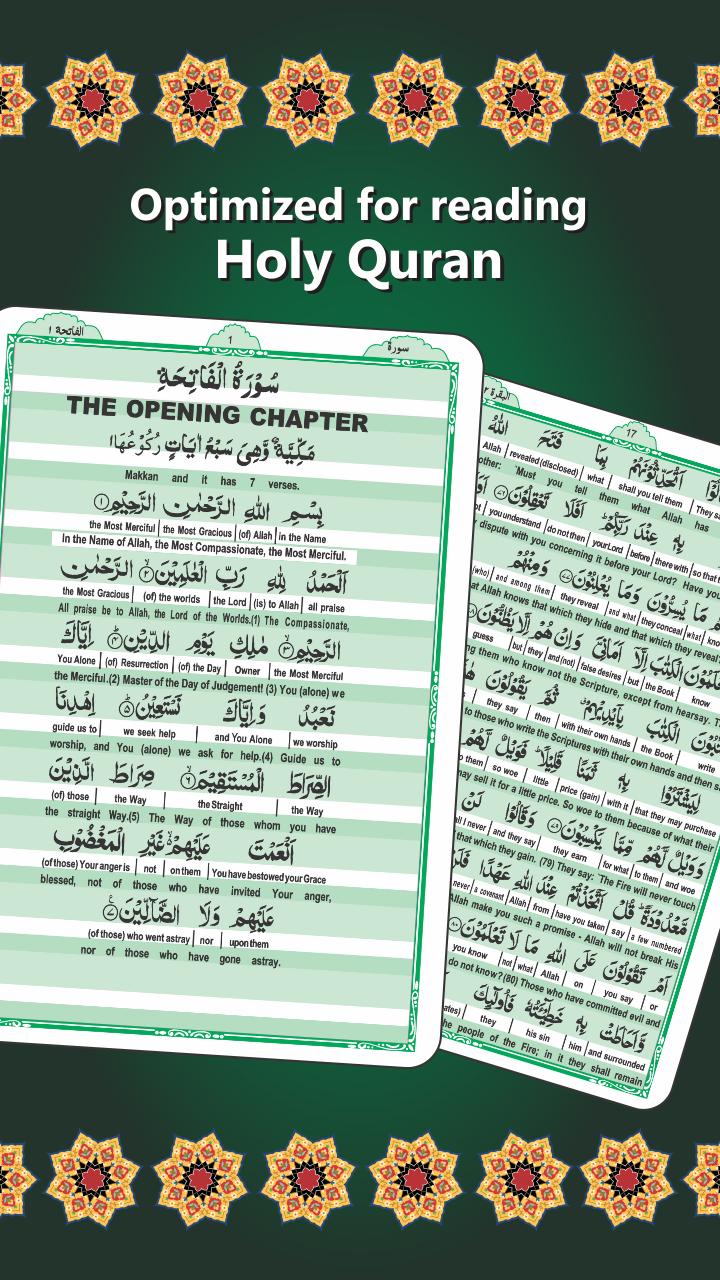 Optimized for reading
Holy Quran
الفاتحة ١
1
سورة
سُوْرَةُ الْفَاتِحَةِ
THE OPENING CHAPTER
مَكِّيَّةٌ وَّهِىَ سَبْعُ اٰيَاتٍ رُكُوْعُهَا١
Makkan and it has 7 verses.
بِسْمِ اللّٰهِ الرَّحْمٰنِ الرَّحِيْمِ ۝١
the Most Merciful | the Most Gracious | (of) Allah | in the Name
In the Name of Allah, the Most Compassionate, the Most Merciful.
اَلْحَمْدُ لِلّٰهِ رَبِّ الْعٰلَمِيْنَ ۝٢ الرَّحْمٰنِ
the Most Gracious | (of) the worlds | the Lord | (is) to Allah | all praise
All praise be to Allah, the Lord of the Worlds.(1) The Compassionate,
الرَّحِيْمِ ۝٣ مٰلِكِ يَوْمِ الدِّيْنِ ۝٤ اِيَّاكَ
You Alone | (of) Resurrection | (of) the Day | Owner | the Most Merciful
the Merciful.(2) Master of the Day of Judgement! (3) You (alone) we
نَعْبُدُ وَاِيَّاكَ نَسْتَعِيْنُ ۝٥ اِهْدِنَا
guide us to | we seek help | and You Alone | we worship
worship, and You (alone) we ask for help.(4) Guide us to
الصِّرَاطَ الْمُسْتَقِيْمَ ۝٦ صِرَاطَ الَّذِيْنَ
(of) those | the Way | the Straight | the Way
the straight Way.(5) The Way of those whom you have
اَنْعَمْتَ عَلَيْهِمْ غَيْرِ الْمَغْضُوْبِ
(of those) Your anger is | not | on them | You have bestowed your Grace
blessed, not of those who have invited Your anger,
عَلَيْهِمْ وَلَا الضَّآلِّيْنَ ۝٧
(of those) who went astray | nor | upon them
nor of those who have gone astray.
البقرة ٢
17
اَتُحَدِّثُوْنَهُمْ بِمَا فَتَحَ اللّٰهُ
Allah | revealed (disclosed) | what | shall you tell them | They sa
other: 'Must you tell them what Allah has
بِهٖ عِنْدَ رَبِّكُمْ اَفَلَا تَعْقِلُوْنَ
you understand | do not then | your Lord | before | there with | so that t
dispute with you concerning it before your Lord? Have you
مَا يُسِرُّوْنَ وَمَا يُعْلِنُوْنَ وَمِنْهُمْ
(who) | and among them | they reveal | and what | they conceal | what | kno
at Allah knows that which they hide and that which they reveal?
الْكِتٰبَ اِلَّآ اَمَانِىَّ وَاِنْ هُمْ اِلَّا يَظُنُّوْنَ
guess | but | they | and (not) | false desires | but | the Book | know
ng them who know not the Scripture, except from hearsay. T
الْكِتٰبَ بِاَيْدِيْهِمْ ثُمَّ يَقُوْلُوْنَ
they say | then | with their own hands | the Book | write
to those who write the Scriptures with their own hands and then s
لِيَشْتَرُوْا بِهٖ ثَمَنًا قَلِيْلًا فَوَيْلٌ لَّهُمْ
o them | so woe | little | price (gain) | with it | that they may purchase
may sell it for a little price. So woe to them because of what their
وَوَيْلٌ لَّهُمْ مِّمَّا يَكْسِبُوْنَ وَقَالُوْا لَنْ
all I never | and they say | they earn | for what | to them | and woe
that which they gain. (79) They say: 'The Fire will never touch
مَّعْدُوْدَةً قُلْ اَتَّخَذْتُمْ عِنْدَ اللّٰهِ عَهْدًا فَلَنْ
never | a covenant | Allah | from | have you taken | say | a few numbered
Allah make you such a promise - Allah will not break His
اَمْ تَقُوْلُوْنَ عَلَى اللّٰهِ مَا لَا تَعْلَمُوْنَ
you know | not | what | Allah | on | you say | or
do not know? (80) Those who have committed evil and
وَّاَحَاطَتْ بِهٖ خَطِيْٓـَٔتُهٗ فَاُولٰٓئِكَ
ates) | they | his sin | him | and surrounded
he people of the Fire; in it they shall remain